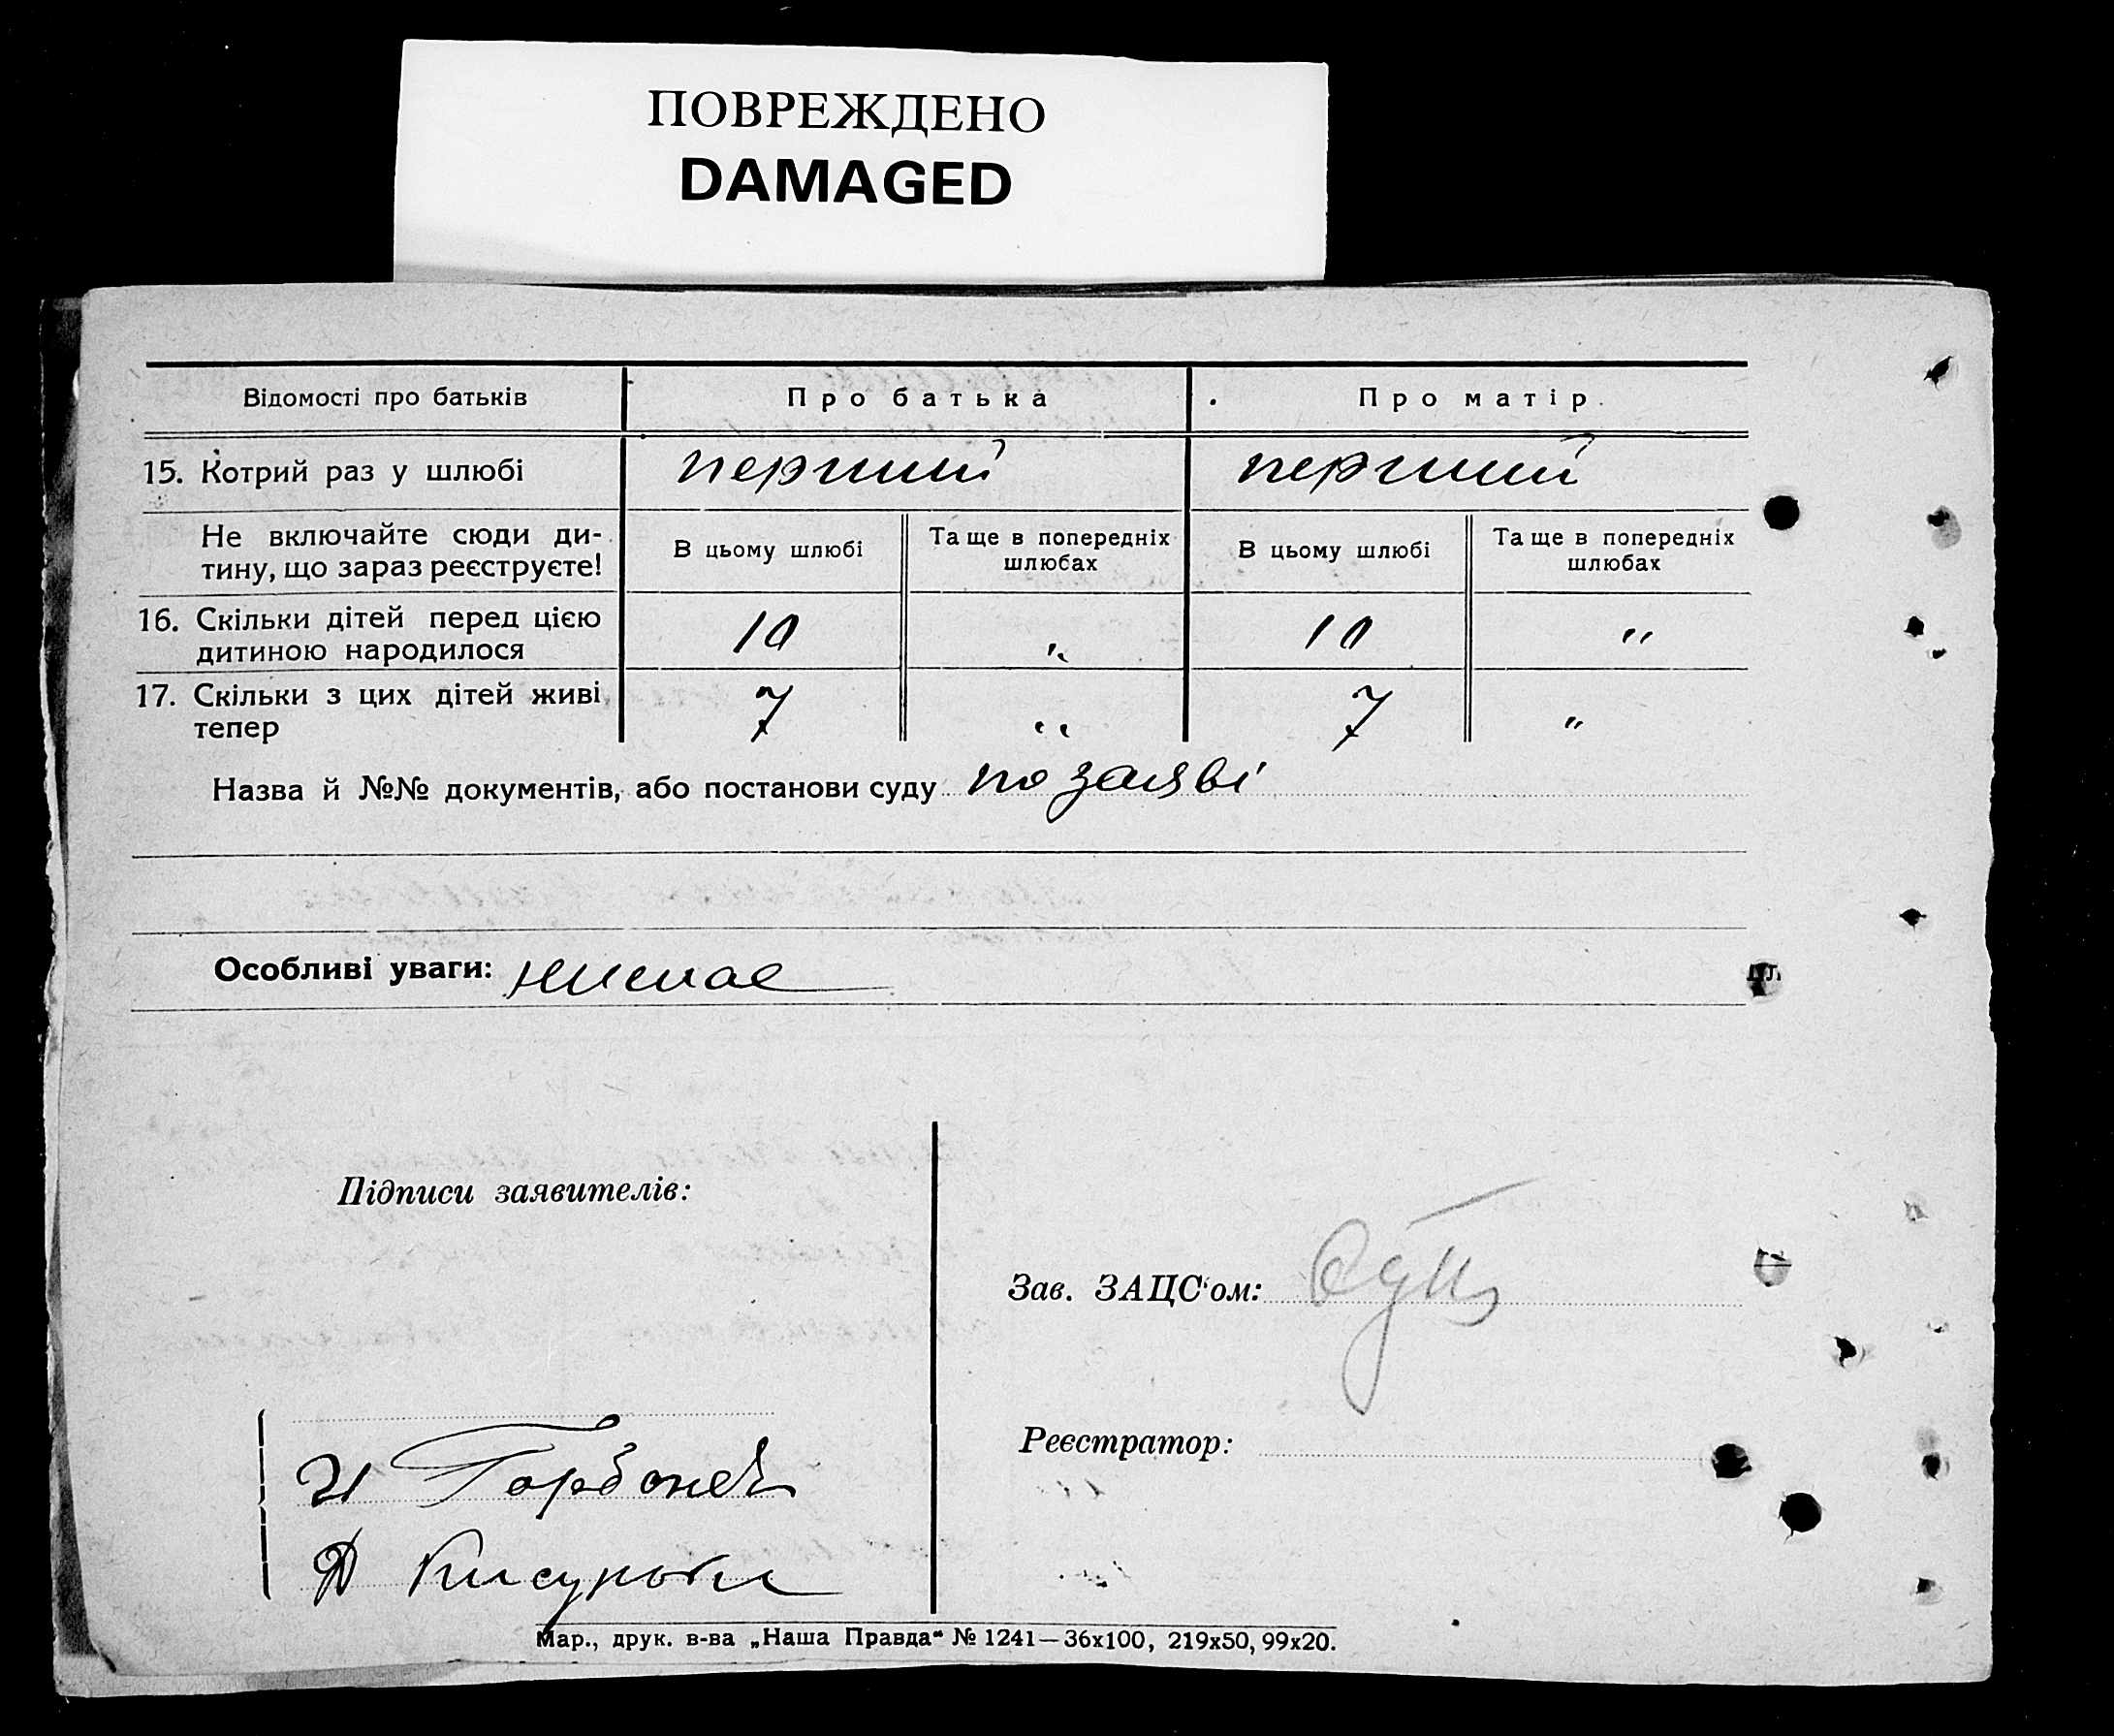 ПОВРЕЖДЕНО
DAMAGED
Відомості про батьків
Про батька
Про матір.
15. Котрий раз у шлюбі
перший
перший
Не включайте сюди ди-
тину, що зараз реєструєте!
В цьому шлюбі
Та ще в попередніх
шлюбах
В цьому шлюбі
Та ще в попередніх
шлюбах
16. Скільки дітей перед цією
дитиною народилося
10
"
10
"
17. Скільки з цих дітей живі
тепер
7
"
7
"
Назва й №№ документів, або постанови суду по заяві
Особливі уваги: нимає
Підписи заявителів:
Зав. ЗАЦС'ом:
Реєстратор:
И
Д
Мар., друк. в-ва „Наша Правда“ № 1241—36х100, 219х50, 99х20.